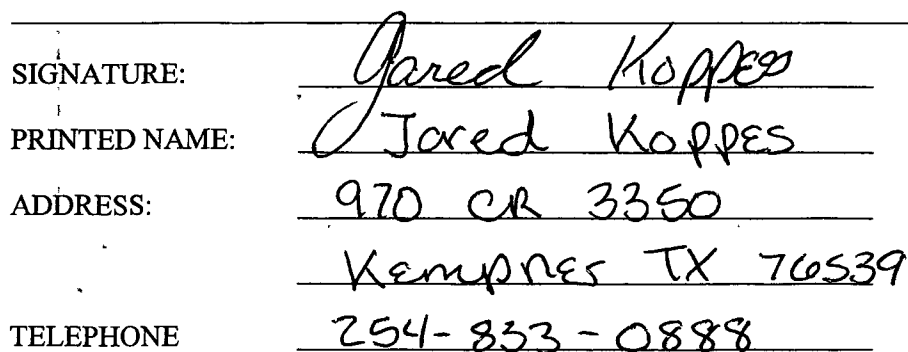 SIGNATURE: Jared Koppes
PRINTED NAME: Jared Koppes
ADDRESS: 970 CR 3350
Kempner TX 76539
TELEPHONE 254-833-0888